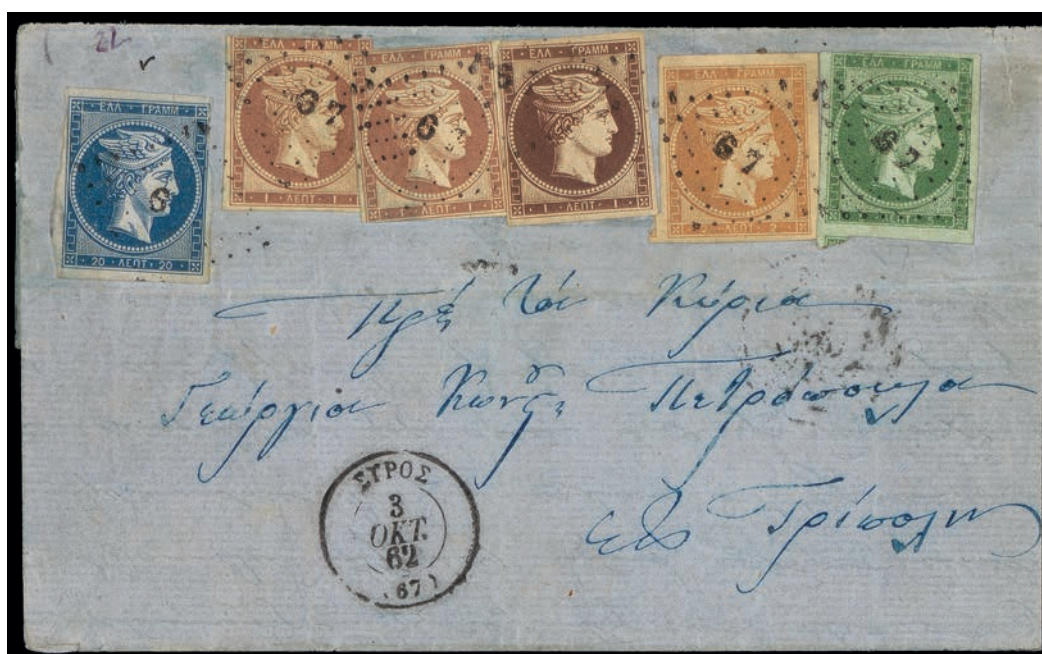 22
ΕΛΛ ΓΡΑΜΜ
20 · ΛΕΠΤ · 20
6
ΕΛΛ · ΓΡΑΜΜ
1 · ΛΕΠΤ · 1
67
ΕΛΛ · ΓΡΑΜΜ
1 · ΛΕΠΤ · 1
67
ΕΛΛ · ΓΡΑΜΜ
1 · ΛΕΠΤ · 1
ΕΛΛ · ΓΡΑΜΜ
2 · ΛΕΠΤ · 2
67
ΕΛΛ · ΓΡΑΜΜ
ΛΕΠΤ
67
Κύριον
Γεώργιον Κωνσ. Πετρόπουλον
Εις Τρίπολιν
ΣΥΡΟΣ
3
ΟΚΤ.
62
(67)